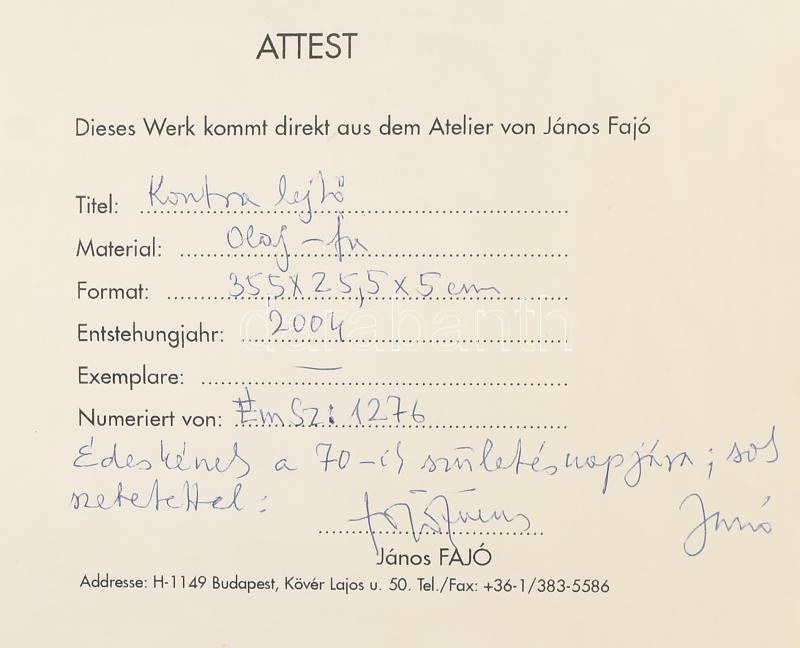 ATTEST
Dieses Werk kommt direkt aus dem Atelier von János Fajó
Titel: Kontra lejtő
Material: Olaj - fa
Format: 35,5 x 25,5 x 5 cm
Entstehungjahr: 2004
darabanth
Exemplare: —
Numeriert von: Sz: 1276
Édeskének a 70-ik születésnapjára; sok
szeretettel:
János FAJÓ
Addresse: H-1149 Budapest, Kövér Lajos u. 50. Tel./Fax: +36-1/383-5586